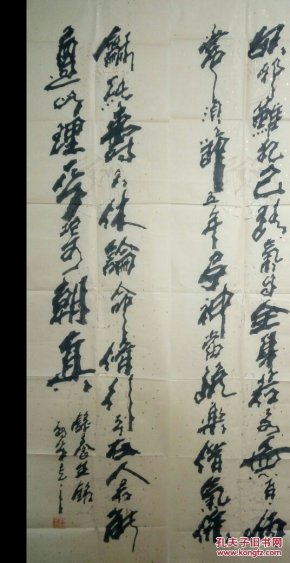 妖邪難犯己精氣自全身若要無百病
常須節五辛安神當悅樂惜氣保
龢純壽夭休論命修行在本人若能
遵此理平地可朝真
錄養生銘
孔夫子旧书网